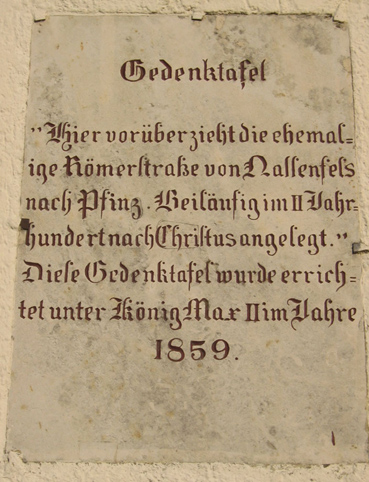 Gedenktafel
"Hier vorüberzieht die ehemal=
ige Römerstraße von Nassenfels
nach Pfinz. Beiläufig im II Jahr=
hundert nach Christus angelegt."
Diese Gedenktafel wurde errich=
tet unter König Max II im Jahre
1859.